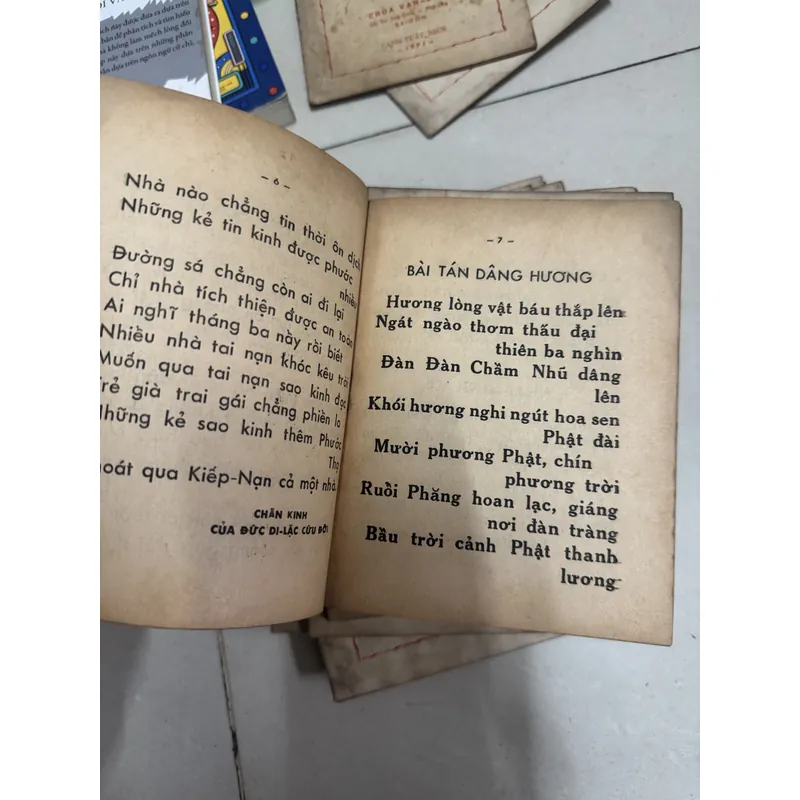 ích này được đưa ra dựa trên
bản để phân tích và tìm hiểu
CANH TUẤT_NIÊN
– 6 –
Nhà nào chẳng tin thời ôn dịch
Những kẻ tin kinh được phước
nhiều
Đường sá chẳng còn ai đi lại
Chỉ nhà tích thiện được an toàn
Ai nghĩ tháng ba này rồi biết
Nhiều nhà tai nạn khóc kêu trời
Muốn qua tai nạn sao kinh đọc
Trẻ già trai gái chẳng phiền lo
Những kẻ sao kinh thêm Phước
Thọ
hoát qua Kiếp-Nạn cả một nhà.
CHÂN KINH
CỦA ĐỨC DI-LẶC CỨU ĐỜI
– 7 –
BÀI TÁN DÂNG HƯƠNG
Hương lòng vật báu thắp lên
Ngát ngào thơm thấu đại
thiên ba nghìn
Đàn Đàn Chầm Nhũ dâng
lên
Khói hương nghi ngút hoa sen
Phật đài
Mười phương Phật, chín
phương trời
Ruồi Phăng hoan lạc, giáng
nơi đàn tràng
Bầu trời cảnh Phật thanh
lương